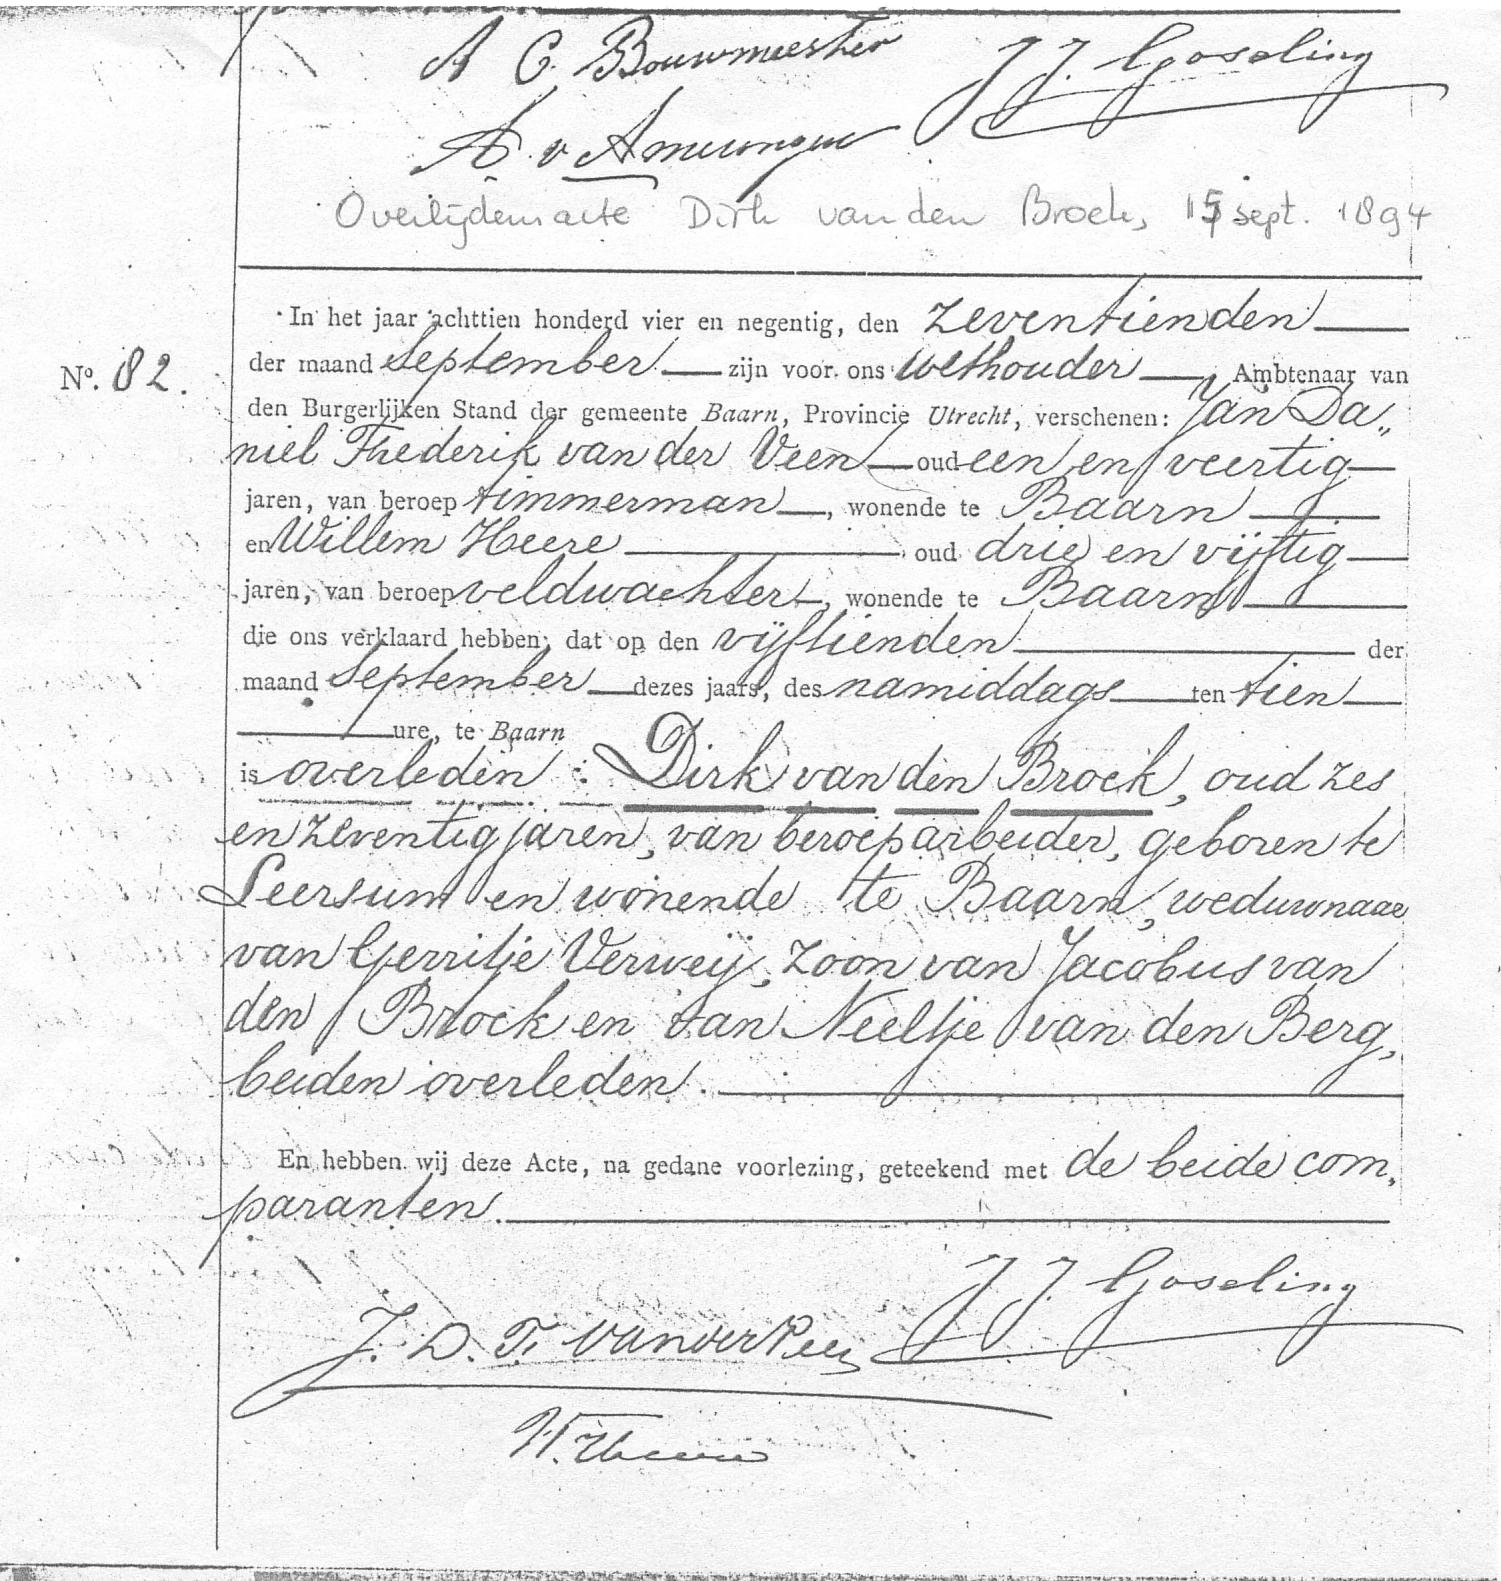 A C. Bouwmeester J J. Goseling
A. v. Amerongen
Overlijdensacte Dirk van den Broek, 15 sept. 1894
In het jaar achttien honderd vier en negentig, den zeventienden
No. 82.
der maand September zijn voor ons wethouder, Ambtenaar van
den Burgerlijken Stand der gemeente Baarn, Provincie Utrecht, verschenen: Jan Da„
niel Frederik van der Veen oud een en veertig
jaren, van beroep timmerman, wonende te Baarn
en Willem Heere oud drie en vijftig
jaren, van beroep veldwachter, wonende te Baarn
die ons verklaard hebben, dat op den vijftienden der
maand September dezes jaars, des namiddags ten tien
ure, te Baarn
is overleden : Dirk van den Broek, oud zes
en zeventig jaren, van beroep arbeider, geboren te
Leersum en wonende te Baarn, weduwnaar
van Gerritje Verweij, zoon van Jacobus van
den Broek en van Neeltje van den Berg,
beiden overleden.
En hebben wij deze Acte, na gedane voorlezing, geteekend met de beide com„
paranten.
J J. Goseling
J. D. F. van der Veen
W. Heere